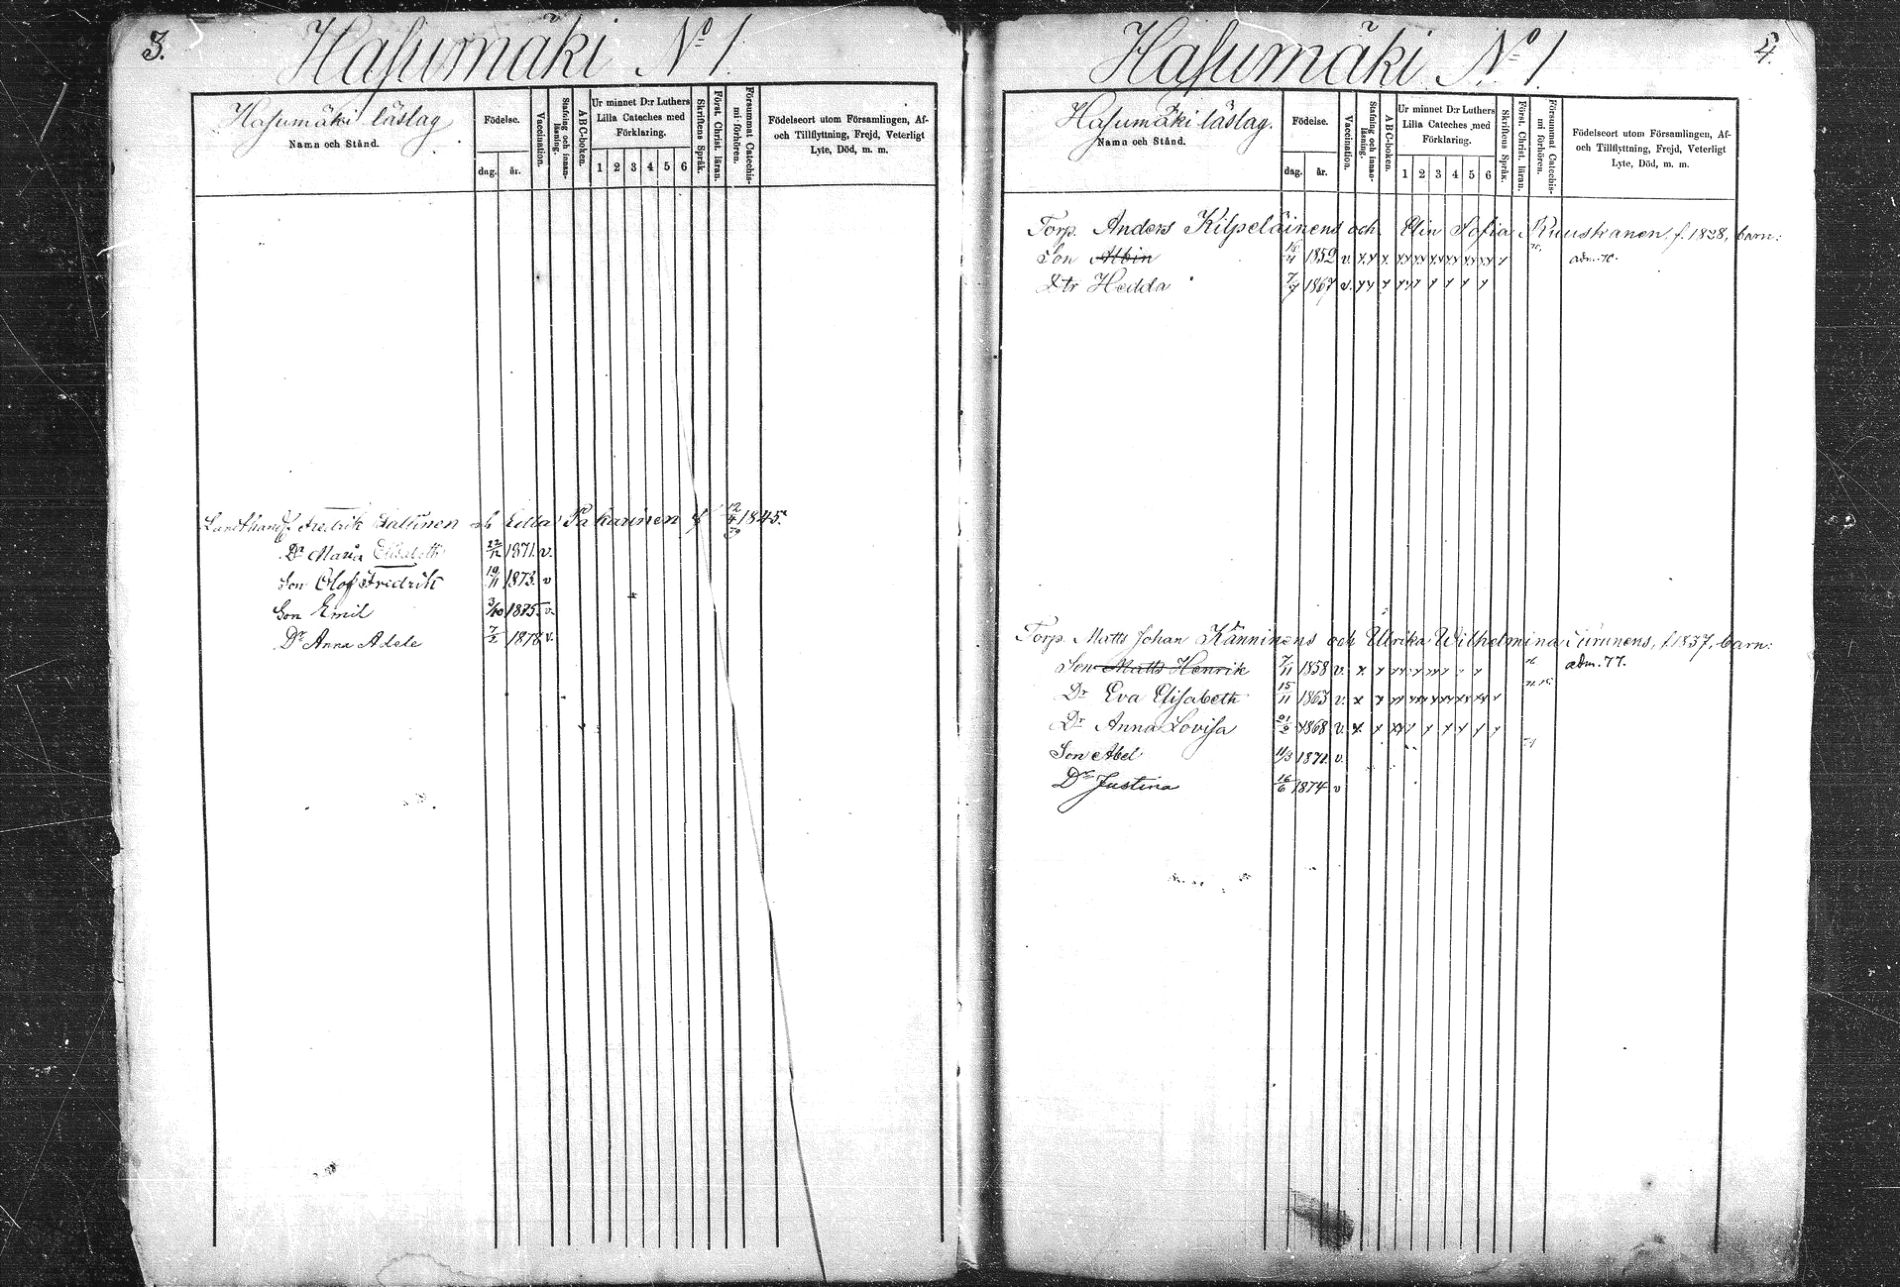 3.
Hasumäki No 1.
Hasumäki läslag
Namn och Stånd.
Födelse.
dag.
år.
Vaccination.
Stafning och innan-läsning.
ABC-boken.
Ur minnet D:r Luthers
Lilla Cateches med
Förklaring.
1 2 3 4 5 6
Skriftens Språk.
Först. Christ. läran.
Försummat Catechis-
mi förhören.
Födelseort utom Församlingen, Af-
och Tillflyttning, Frejd, Veterligt
Lyte, Död, m. m.
Fredrik och Edla Pakarinen f. 1845.
Dr Maria Elisabeth 22/12 1871. v.
Son Olof Fredrik 19/11 1873. v
Son Emil 3/10 1875. v.
Dr Anna Adele 7/2 1878 v.
4.
Hasumäki No 1
Hasumäki läslag.
Namn och Stånd.
Födelse.
dag.
år.
Vaccination.
Stafning och innan-
läsning.
ABC-boken.
Ur minnet D:r Luthers
Lilla Cateches med
Förklaring.
1 2 3 4 5 6
Skriftens Språk.
Först. Christ. läran.
Försummat Catechis-
mi förhören.
Födelseort utom Församlingen, Af-
och Tillflyttning, Frejd, Veterligt
Lyte, Död, m. m.
Torp. Anders Kilpeläinens och Elin Sofia f. 1828, barn:
Son Albin 1852 v.
Dtr Hedda 7/7 1867 v.
Torp. Matts Johan Känninens och Ulrika Wilhelmina f. 1837, barn:
Son Matts Henrik 7/11 1858 v. adm. 77.
Dr Eva Elisabeth 15/11 1863 v.
Dr Anna Lovisa 21/2 1868 v.
Son Abel 11/3 1871 v.
Dr Justina 16/6 1874 v